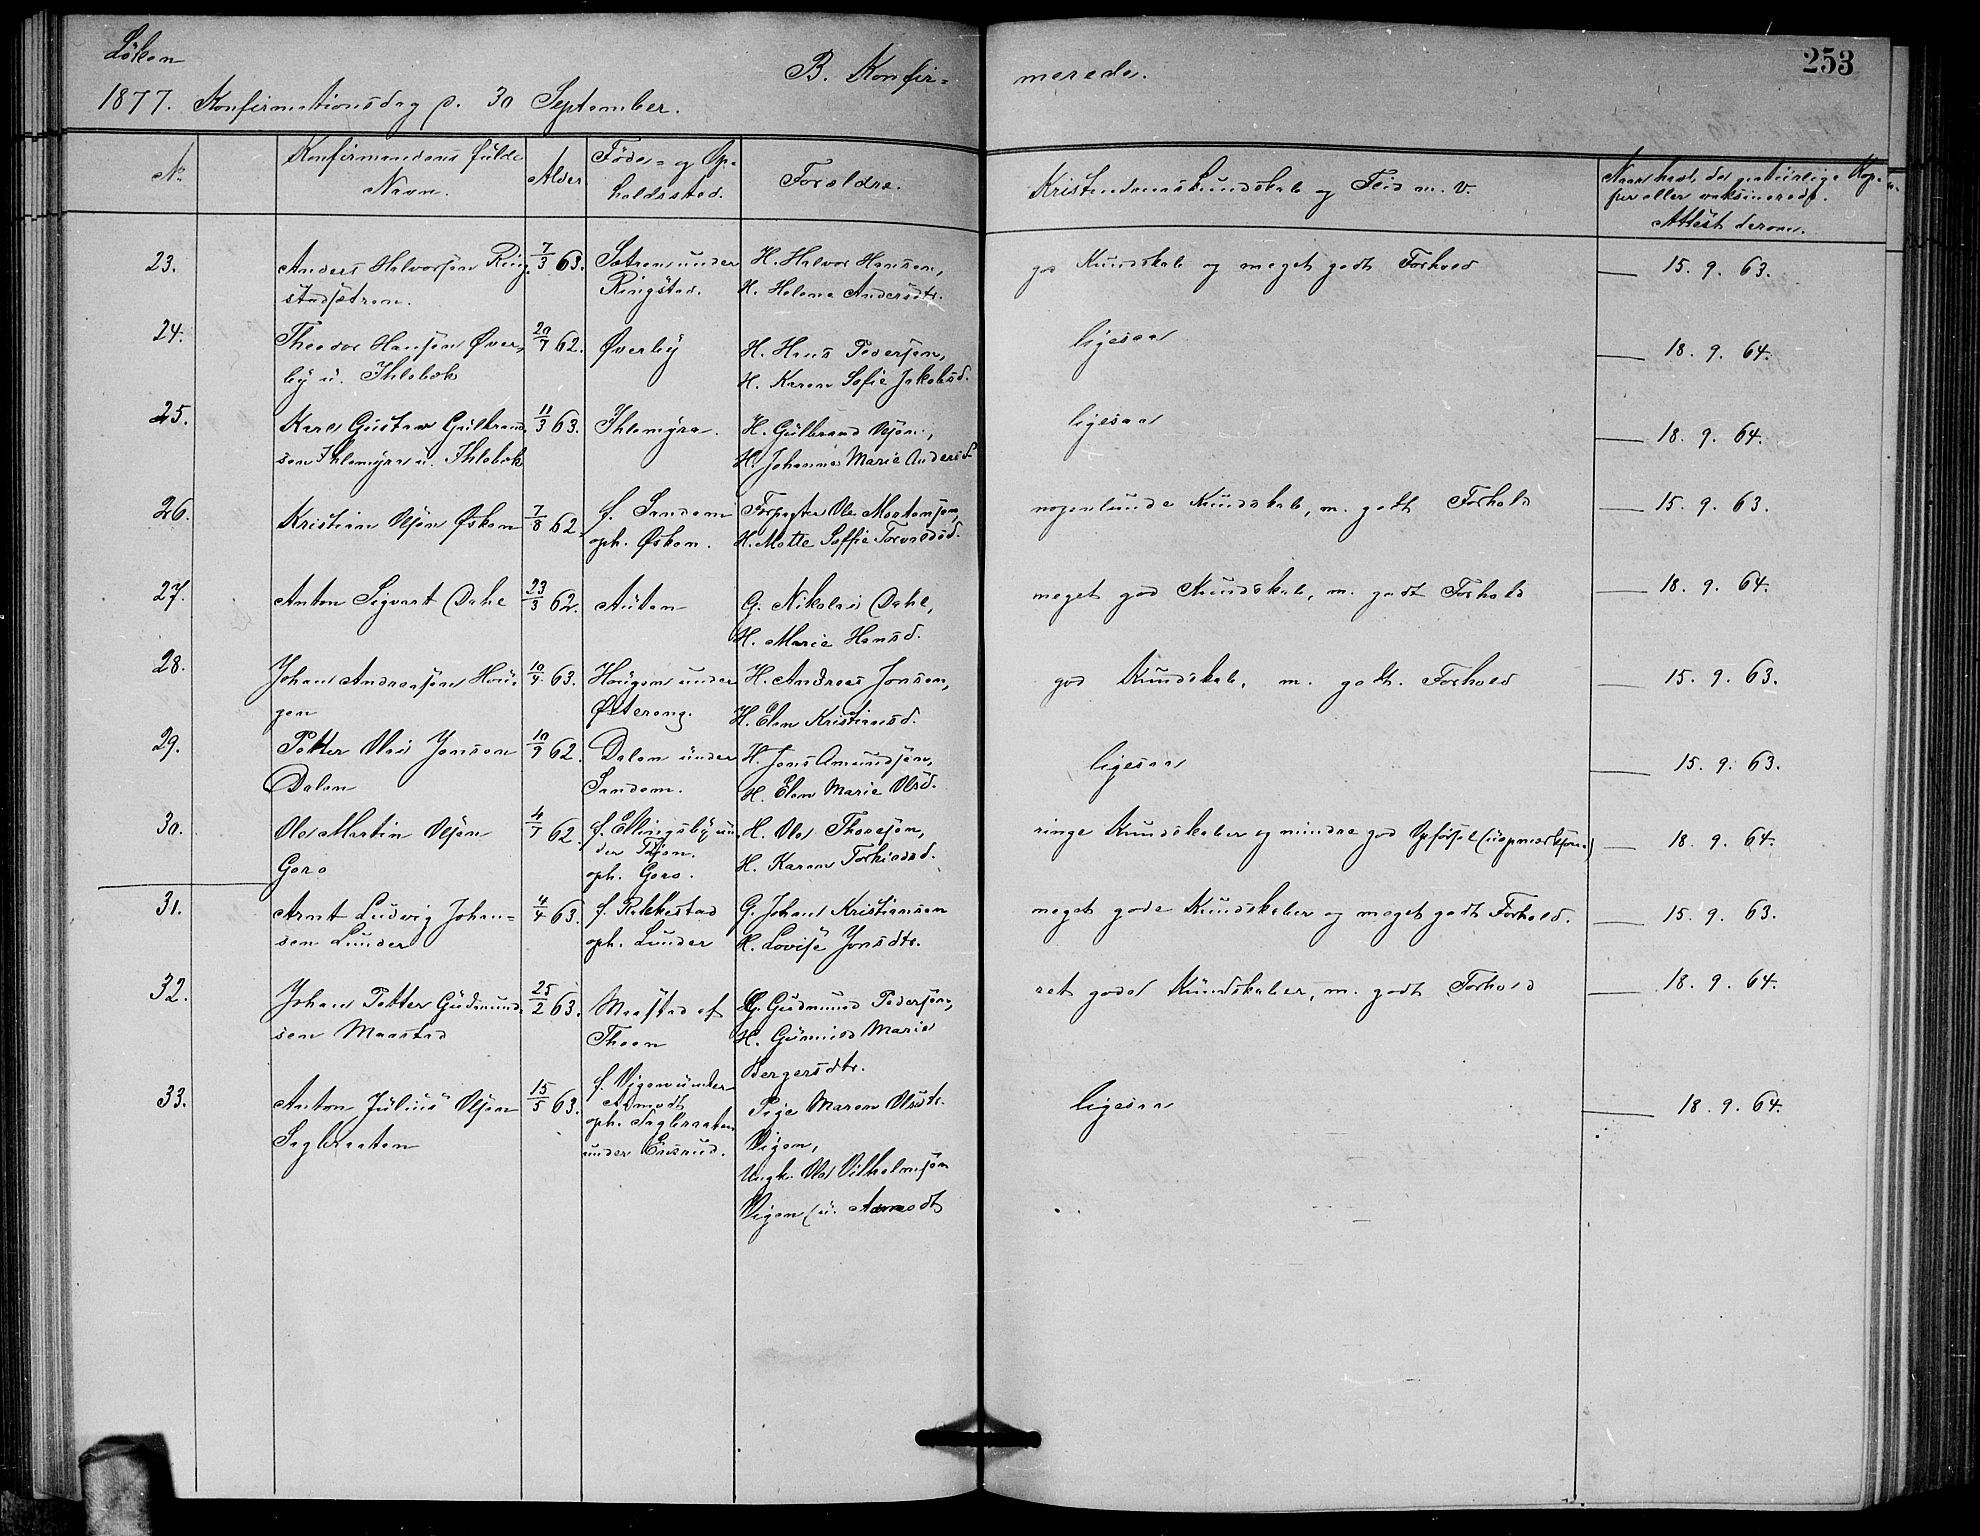 Löken
B. Konfir=
merede.
253
1877. Konfirmationsdag d. 30 September.
No
Konfirmandens fulde
Navn.
Alder
Føde= og Op=
holdssted.
Forældre.
Kristendomskundskab og Flid m. v.
Naar havt de naturlige Kop=
per eller vaksineredes.
Attest derom.
23.
Anders Halvorsen Ring
stadsætren.
7/3 63.
Sætren under
Ringstad.
H. Halvor Hansen,
H. Helene Andersdtr.
god Kundskab og meget godt Forhold
15. 9. 63.
24.
Theodor Hansen Øver
by u. Ihlebæk
20/7 62.
Øverby
H. Hans Pedersen,
H. Karen Sofie Jakobsd.
ligesaa
18. 9. 64.
25.
Karl Gustav Gulbrand
sen Ihlemyra u. Ihlebæk
11/3 63.
Ihlemyra.
H. Gulbrand Olsen,
H. Johanne Marie Andersd.
ligesaa
18. 9. 64.
26.
Kristian Olsen Øsken
7/8 62.
f. Sandem
oph. Øsken.
Forpagter Ole Mortensen,
H. Mette Soffie Torvaldsd.
nogenlunde Kundskab, m. godt Forhold
15. 9. 63.
27.
Anton Sigvart Dahl
23/3 62.
Auten
G. Nikolai Dahl,
H. Marie Hansd.
meget god Kundskab, m. godt Forhold
18. 9. 64.
28.
Johan Andreasen Hou=
gen
10/4 63.
Hougen under
Østereng.
H. Andreas Jonsen,
H. Elen Kristiansd.
god Kundskab, m. godt. Forhold
15. 9. 63.
29.
Petter Olai Jensen
Dalen
10/9 62.
Dalen under
Sandem.
H. Jens Amundsen,
H. Elen Marie Olsd.
ligesaa
15. 9. 63.
30.
Ole Martin Olsen
Gero
4/7 62.
f. Ellingsby un
der Tøien.
oph. Gero.
H. Ole Thoresen,
H. Karen Torkildsd.
ringe Kundskaber og mindre god Opførsel (uopmærksom)
18. 9. 64.
31.
Arnt Ludvig Johan=
sen Lunder
4/4 63.
f. Rakkestad
oph. Lunder
G. Johan Kristiansen
H. Lovise Jonsdtr.
meget gode Kundskaber og meget godt Forhold.
15. 9. 63.
32.
Johan Petter Gudmund
sen Maastad
25/2 63.
Maastad af
Thoen
G. Gudmund Pedersen,
H. Gunnild Marie
Bergersdtr.
ret gode Kundskaber, m. godt Forhold
18. 9. 64.
33.
Anton Julius Olsen
Sagbraaten
15/5 63.
f. Vigen under
Aamodt
oph. Sagbraaten
under Ensrud.
Pige Maren Olsdtr.
Vigen,
Ungk. Ole Vilhelmsen
Vigen (u. Aamodt
ligesaa
18. 9. 64.